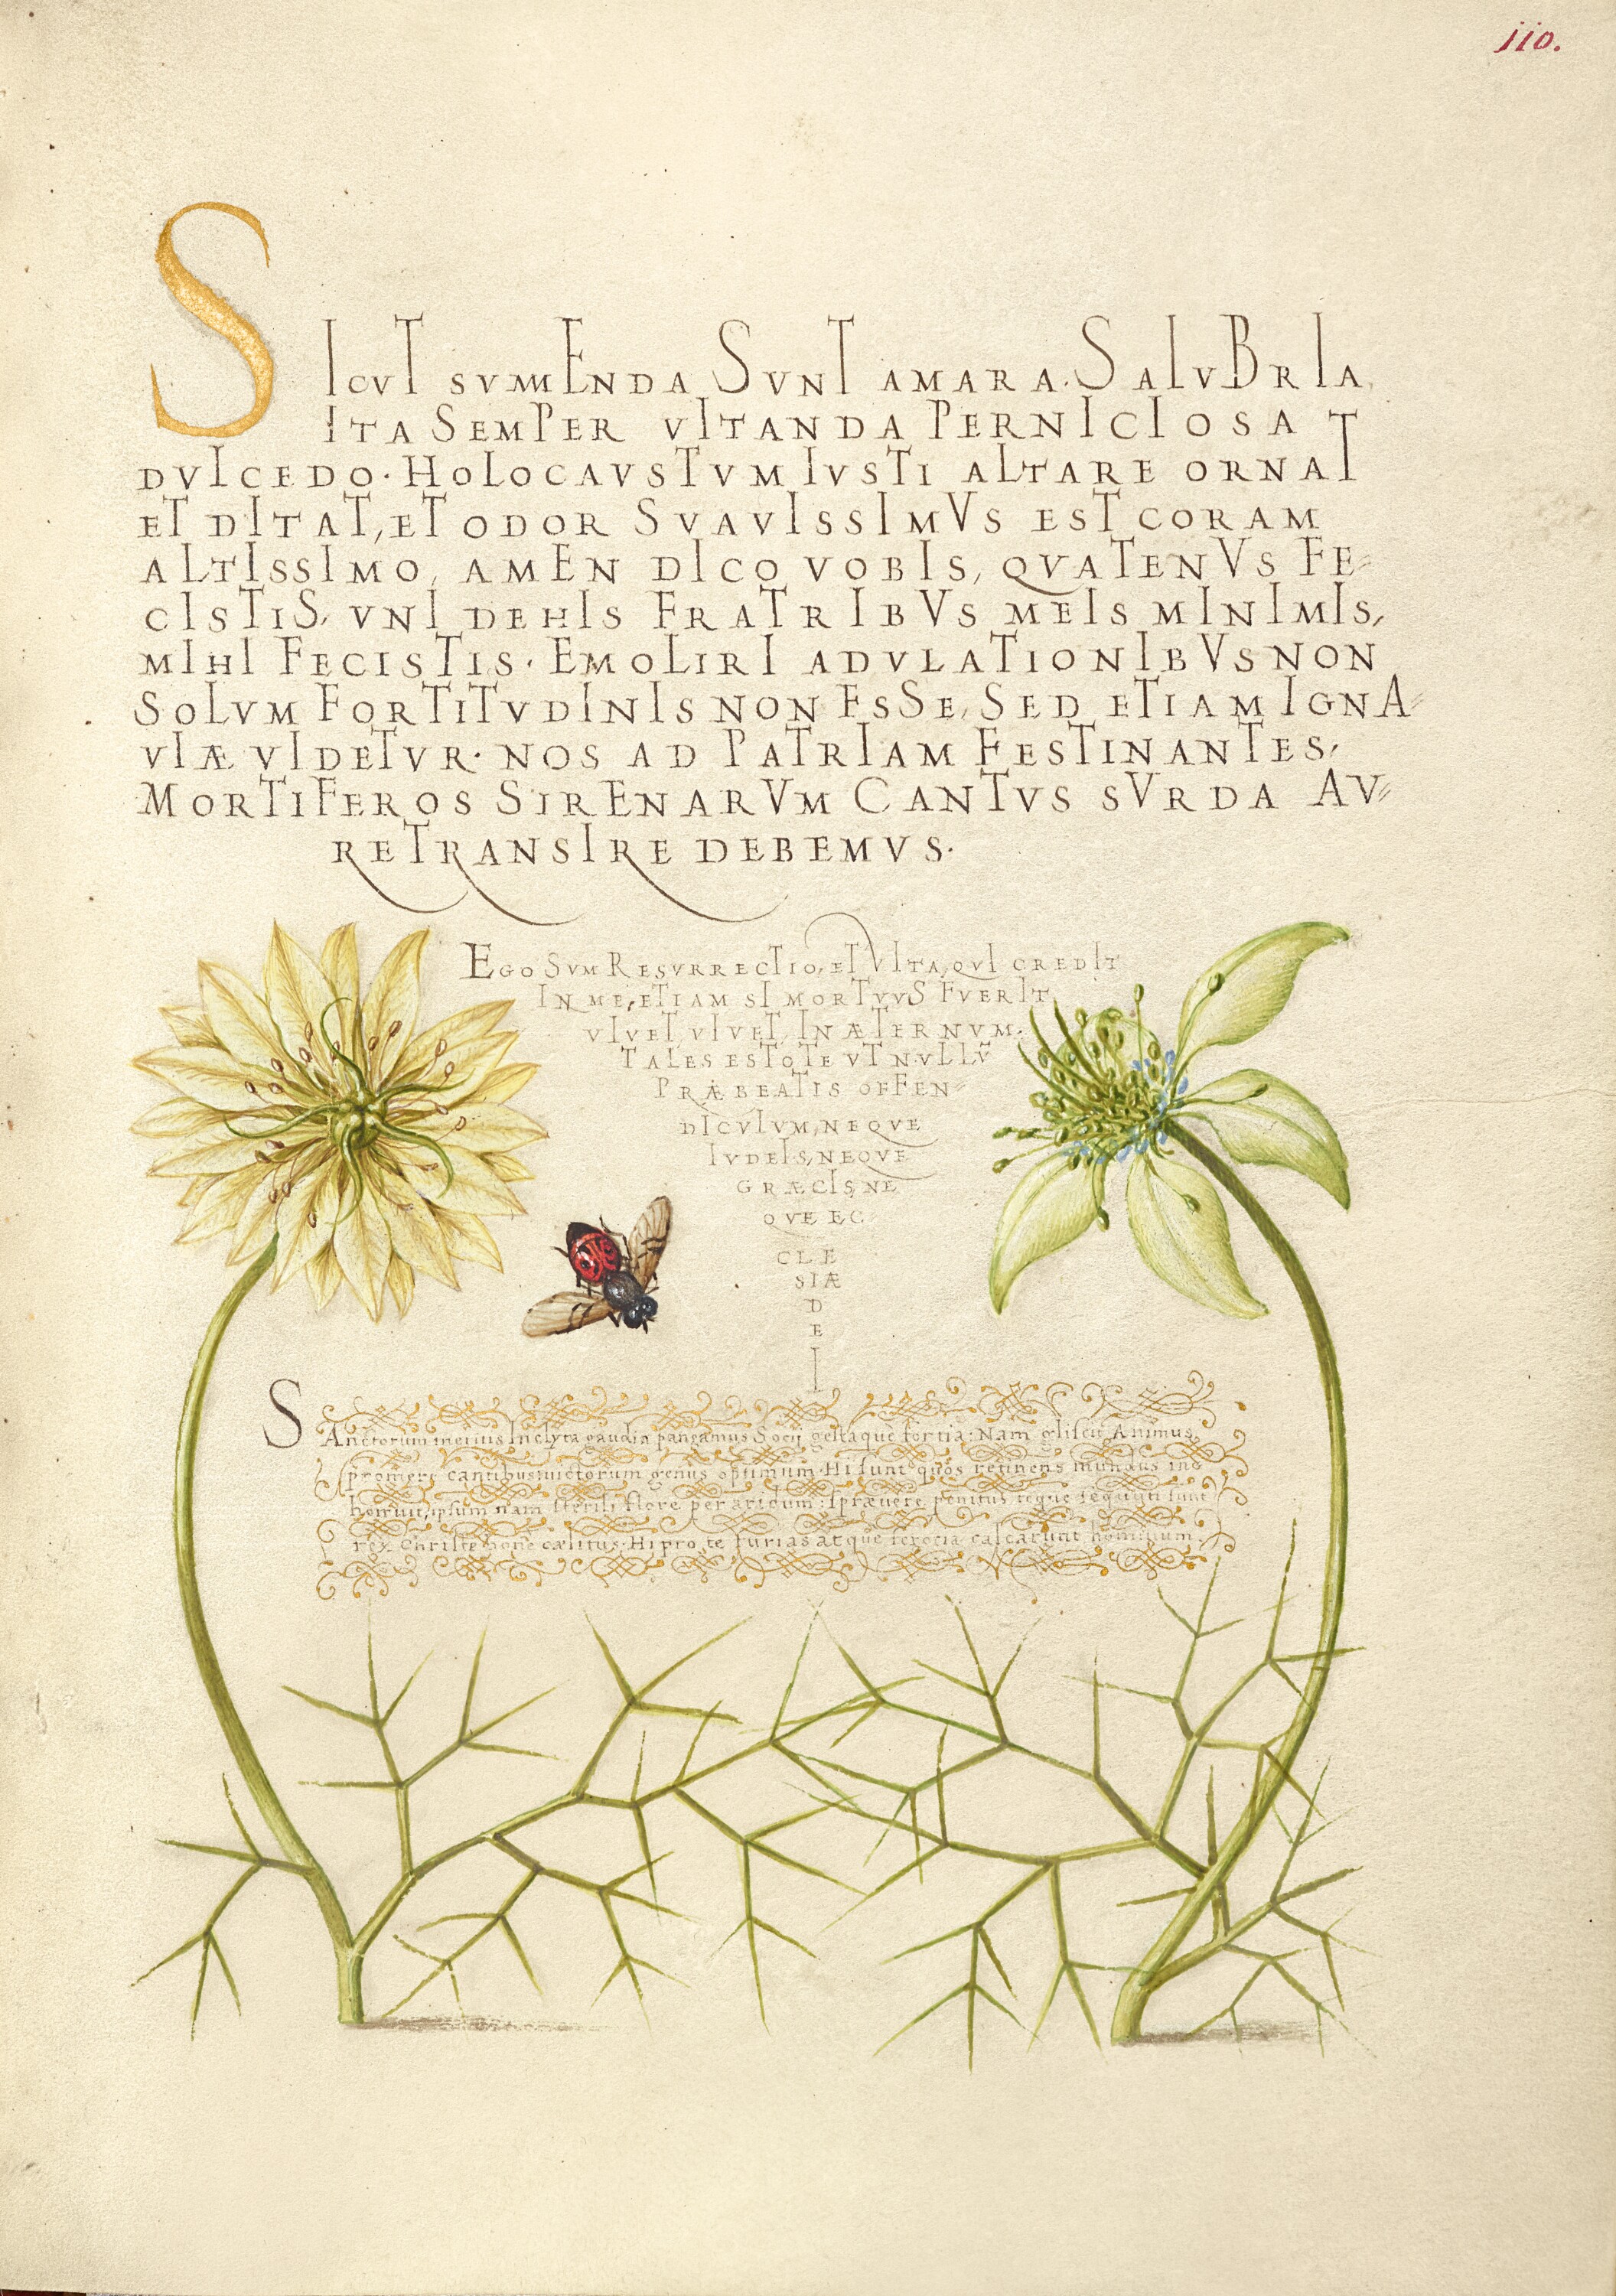 110.
SICVT SVMMENDA SVNT AMARA. SALVBRIA,
ITA SEMPER VITANDA PERNICIOSA T
DVLCEDO. HOLOCAVSTVM IVSTI ALTARE ORNAT
ET DITAT, ET ODOR SVAVISSIMVS EST CORAM
ALTISSIMO, AMEN DICO VOBIS, QVATENVS FE=
CISTIS, VNI DE HIS FRATRIBVS MEIS MINIMIS,
MIHI FECISTIS. EMOLIRI ADVLATIONIBVS NON
SOLVM FORTITVDINIS NON ESSE, SED ETIAM IGNA=
VIÆ VIDETVR. NOS AD PATRIAM FESTINANTES,
MORTIFEROS SIRENARVM CANTVS SVRDA AV=
RE TRANSIRE DEBEMVS.
EGO SVM RESVRRECTIO, ET VITA, QVI CREDIT
IN ME, ETIAM SI MORTVVS FVERIT,
VIVET, VIVET IN ÆTERNVM.
TALES ESTOTE VT NVLLṼ
PRÆBEATIS OFFEN=
DICVLVM, NEQVE
IVDEIS, NEQVE
GRÆCIS, NE
QVE EC
CLE
SIÆ
D
E
I
SAnctorum meritis Inclyta gaudia pangamus Socij gestaque fortia: Nam gliscit Animus,
promere cantibus, victorum genus optimum. Hi sunt quos retinens mundus ino
horruit, ipsum nam sterili flore per aridum: Sprævere penitus teque sequuti sunt
rex Christe bone cælitus. Hi pro te furias atque ferocia calcarunt hominum